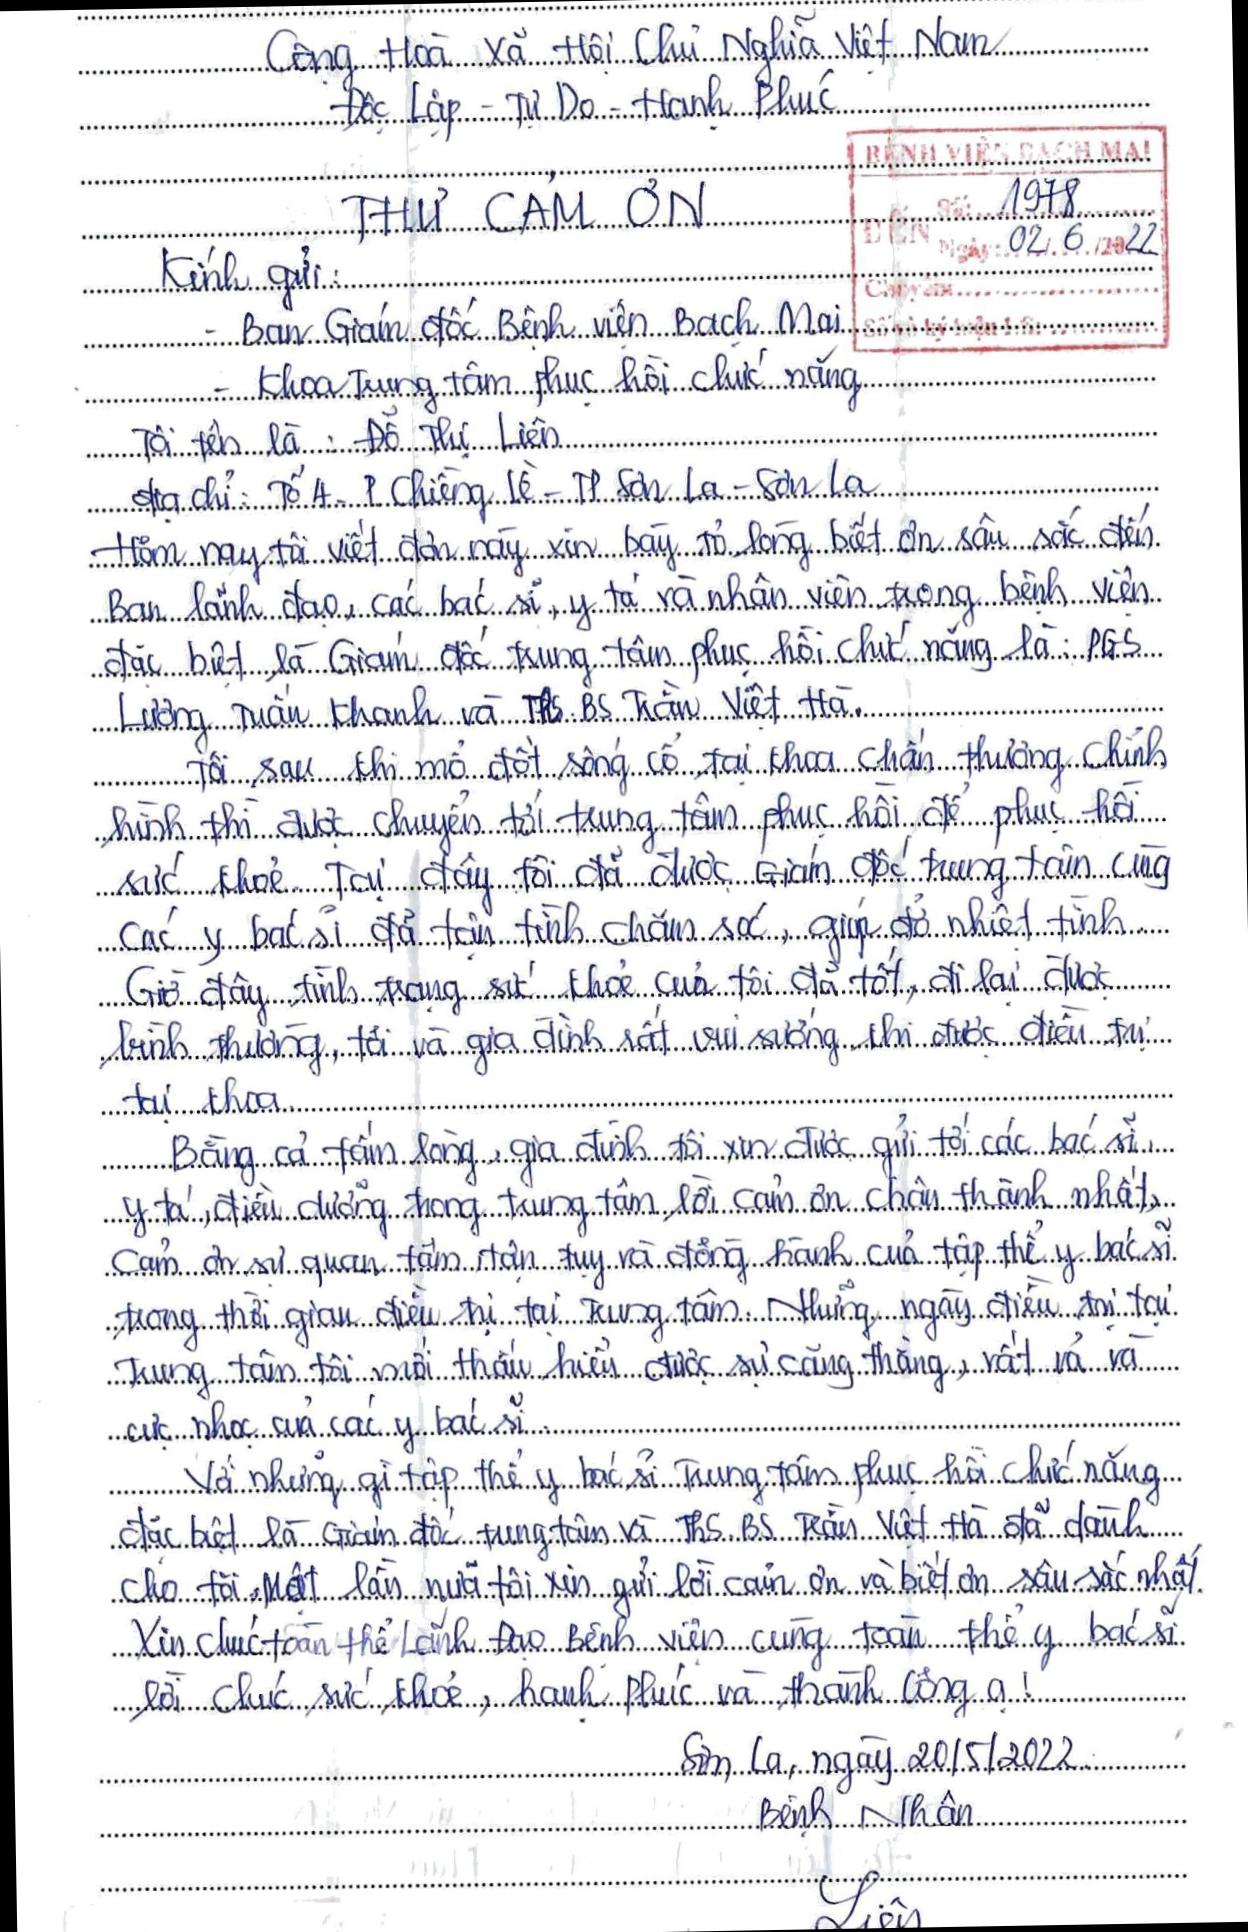 Cộng Hoà Xã Hội Chủ Nghĩa Việt Nam
Độc Lập - Tự Do - Hạnh Phúc
BỆNH VIỆN BẠCH MAI
THƯ CẢM ƠN
Số: 1978
ĐẾN
Ngày: 02/6/2022
Chuyển
Kính gửi:
- Ban Giám đốc Bệnh viện Bạch Mai
Số và ký hiệu HS:
- Khoa Trung tâm phục hồi chức năng
Tôi tên là: Đỗ Thị Liên
địa chỉ: Tổ 4 - P Chiềng Lề - TP Sơn La - Sơn La
Hôm nay tôi viết đơn này xin bày tỏ lòng biết ơn sâu sắc đến
Ban lãnh đạo, các bác sĩ, y tá và nhân viên trong bệnh viện
đặc biệt là Giám đốc trung tâm phục hồi chức năng là: PGS
Lương Tuấn Khanh và ThS.BS Trần Việt Hà.
Tôi sau khi mổ đốt sống cổ tại khoa chấn thương chỉnh
hình thì được chuyển tới trung tâm phục hồi để phục hồi
sức khoẻ. Tại đây tôi đã được Giám đốc trung tâm cùng
các y bác sĩ đã tận tình chăm sóc, giúp đỡ nhiệt tình
Giờ đây tình trạng sức khoẻ của tôi đã tốt, đi lại được
bình thường, tôi và gia đình rất vui sướng khi được điều trị
tại khoa
Bằng cả tấm lòng, gia đình tôi xin được gửi tới các bác sĩ,
y tá, điều dưỡng trong trung tâm lời cảm ơn chân thành nhất,
Cảm ơn sự quan tâm, tận tụy và đồng hành của tập thể y bác sĩ
trong thời gian điều trị tại trung tâm. Những ngày điều trị tại
trung tâm tôi mới thấu hiểu được sự căng thẳng, vất vả và
cực nhọc của các y bác sĩ.
Với những gì tập thể y bác sĩ Trung tâm phục hồi chức năng
đặc biệt là Giám đốc trung tâm và ThS.BS Trần Việt Hà đã dành
cho tôi. Một lần nữa tôi xin gửi lời cảm ơn và biết ơn sâu sắc nhất.
Xin chúc toàn thể Lãnh Đạo Bệnh viện cùng toàn thể y bác sĩ
lời chúc sức khoẻ, hạnh phúc và thành công ạ!
Sơn La, ngày 20/5/2022
Bệnh Nhân
Liên